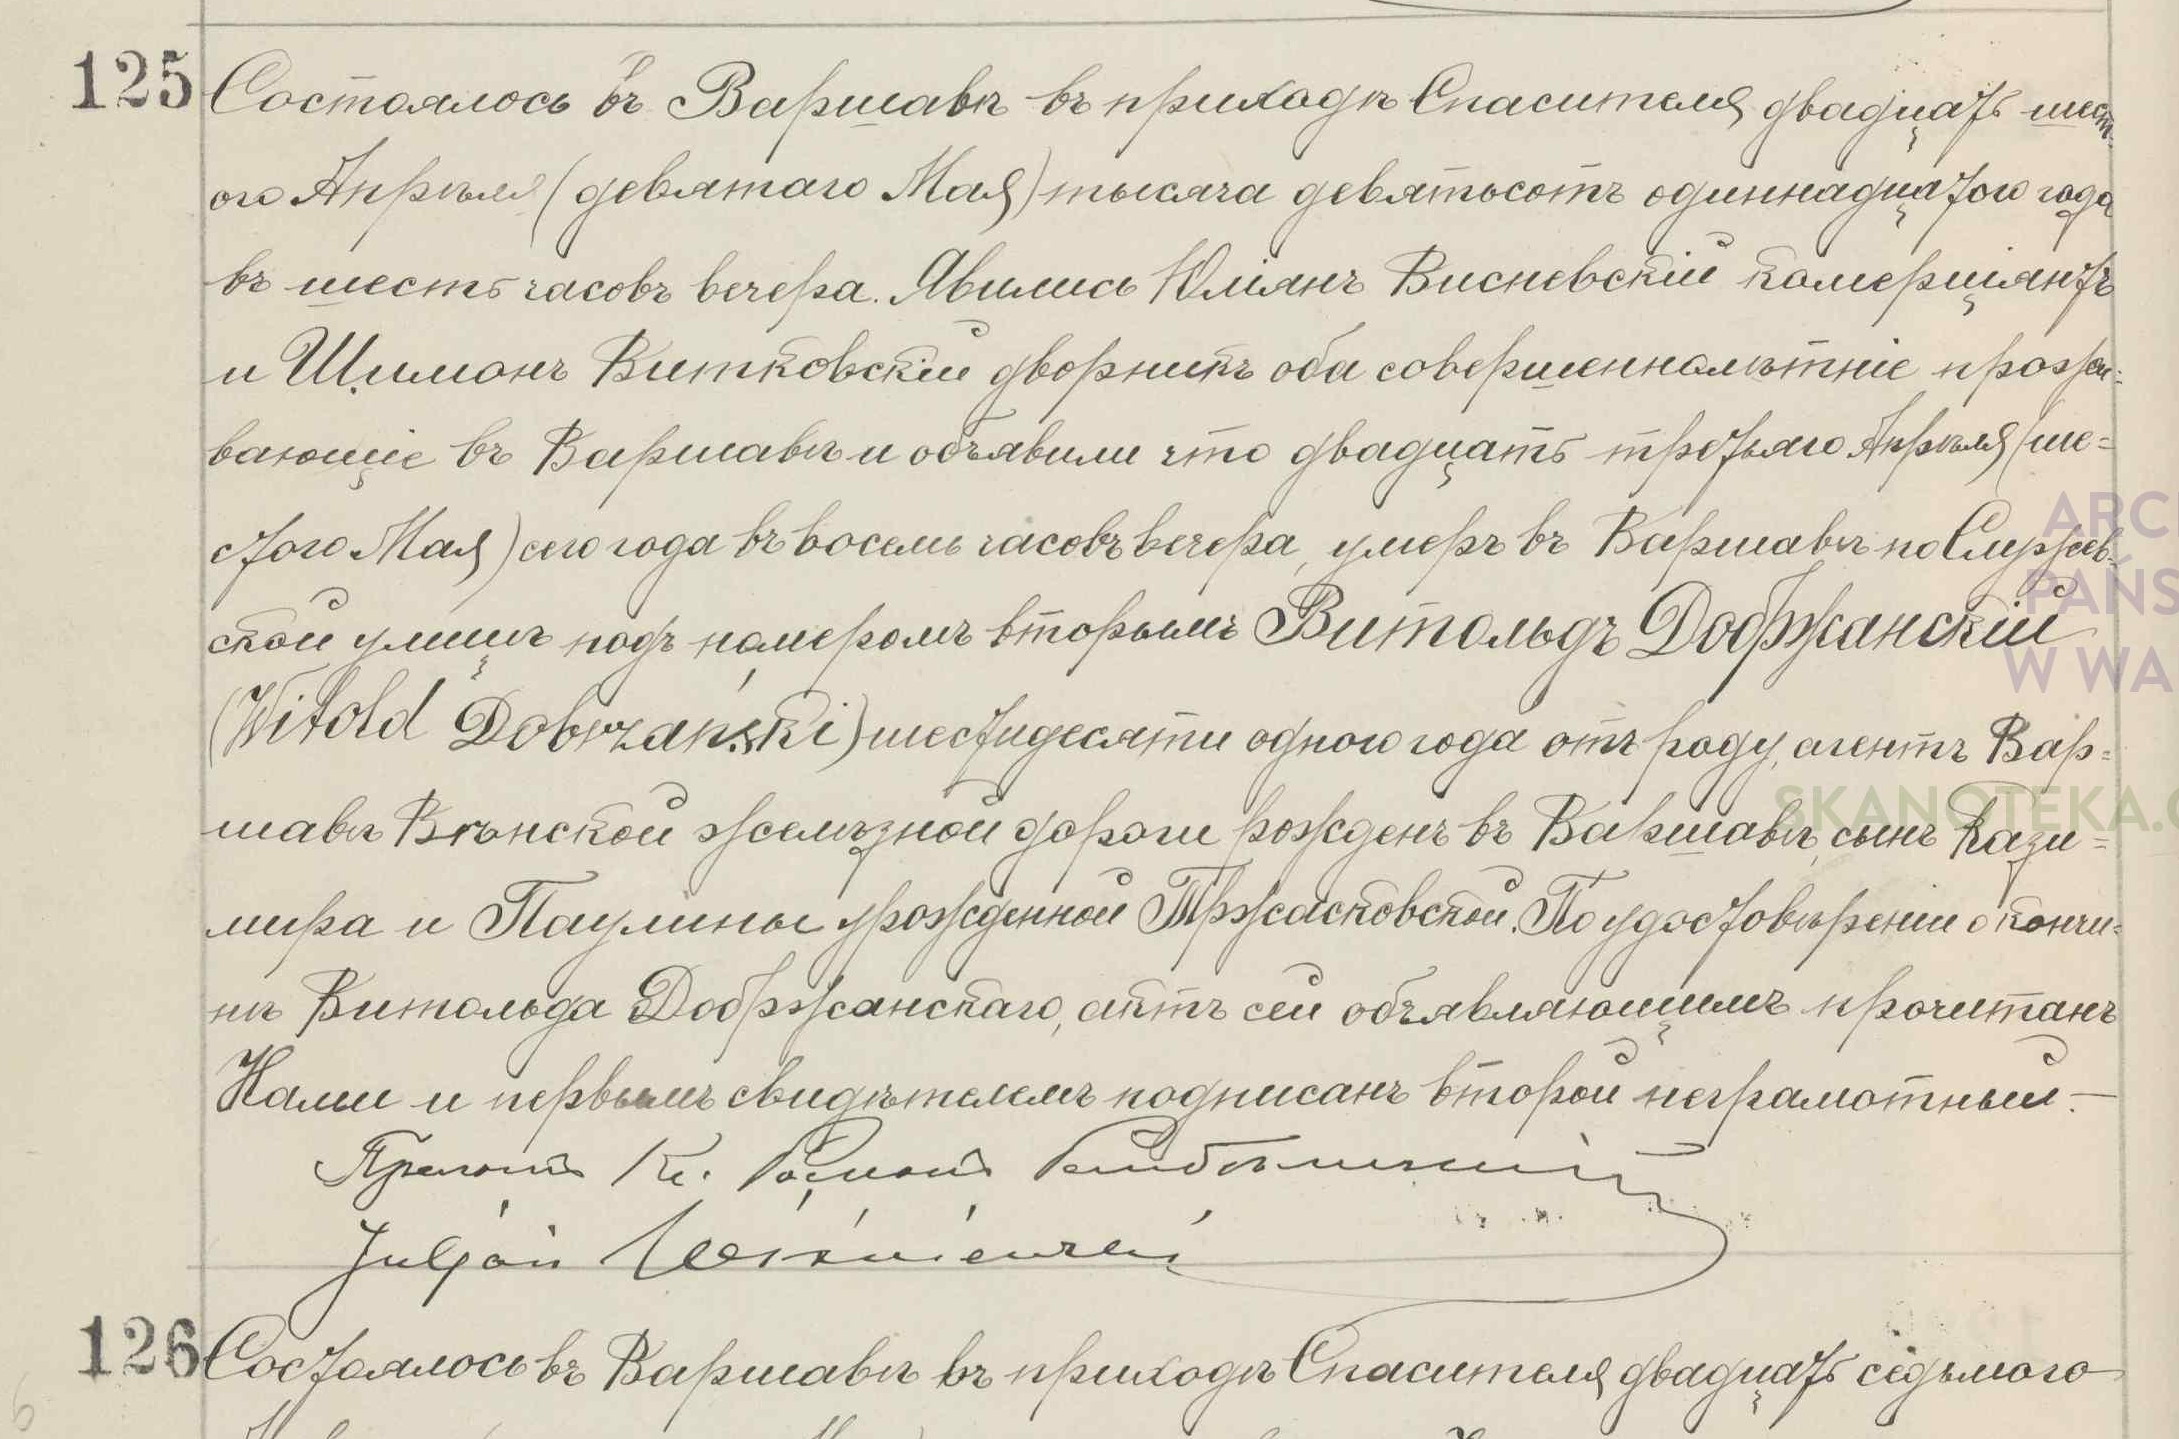 125 Состоялось въ Варшавѣ въ приходѣ Спасителя двадцать шест-
ого Апрѣля (девятаго Мая) тысяча девятьсотъ одиннадцатого года
въ шесть часовъ вечера. Явились Юліянъ Висневскій комерціянтъ
и Шимонъ Витковскій дворникъ оба совершеннолѣтніе прожи-
вающіе въ Варшавѣ и объявили что двадцать третьяго Апрѣля (ше=
стого Мая) сего года въ восемь часовъ вечера, умеръ въ Варшавѣ по Служев-
ской улицѣ подъ номеромъ вторымъ Витольдъ Добржанскій
(Witold Dobrzański) шестидесяти одного года отъ роду, агентъ Вар=
шавѣ Вѣнской желѣзной дороги рожденъ въ Варшавѣ, сынъ Кази=
мира и Паулины урожденной Тржасковской. По удостовѣреніи о кончи=
нѣ Витольда Добржанскаго, актъ сей объявляющимъ прочитанъ
Нами и первымъ свидѣтелемъ подписанъ второй неграмотный. —
Прелатъ Кс.
Juljan Wiśniewski
126 Состоялось въ Варшавѣ въ приходѣ Спасителя двадцать седьмого
ARC
PAŃS
W WA
SKANOTEKA.